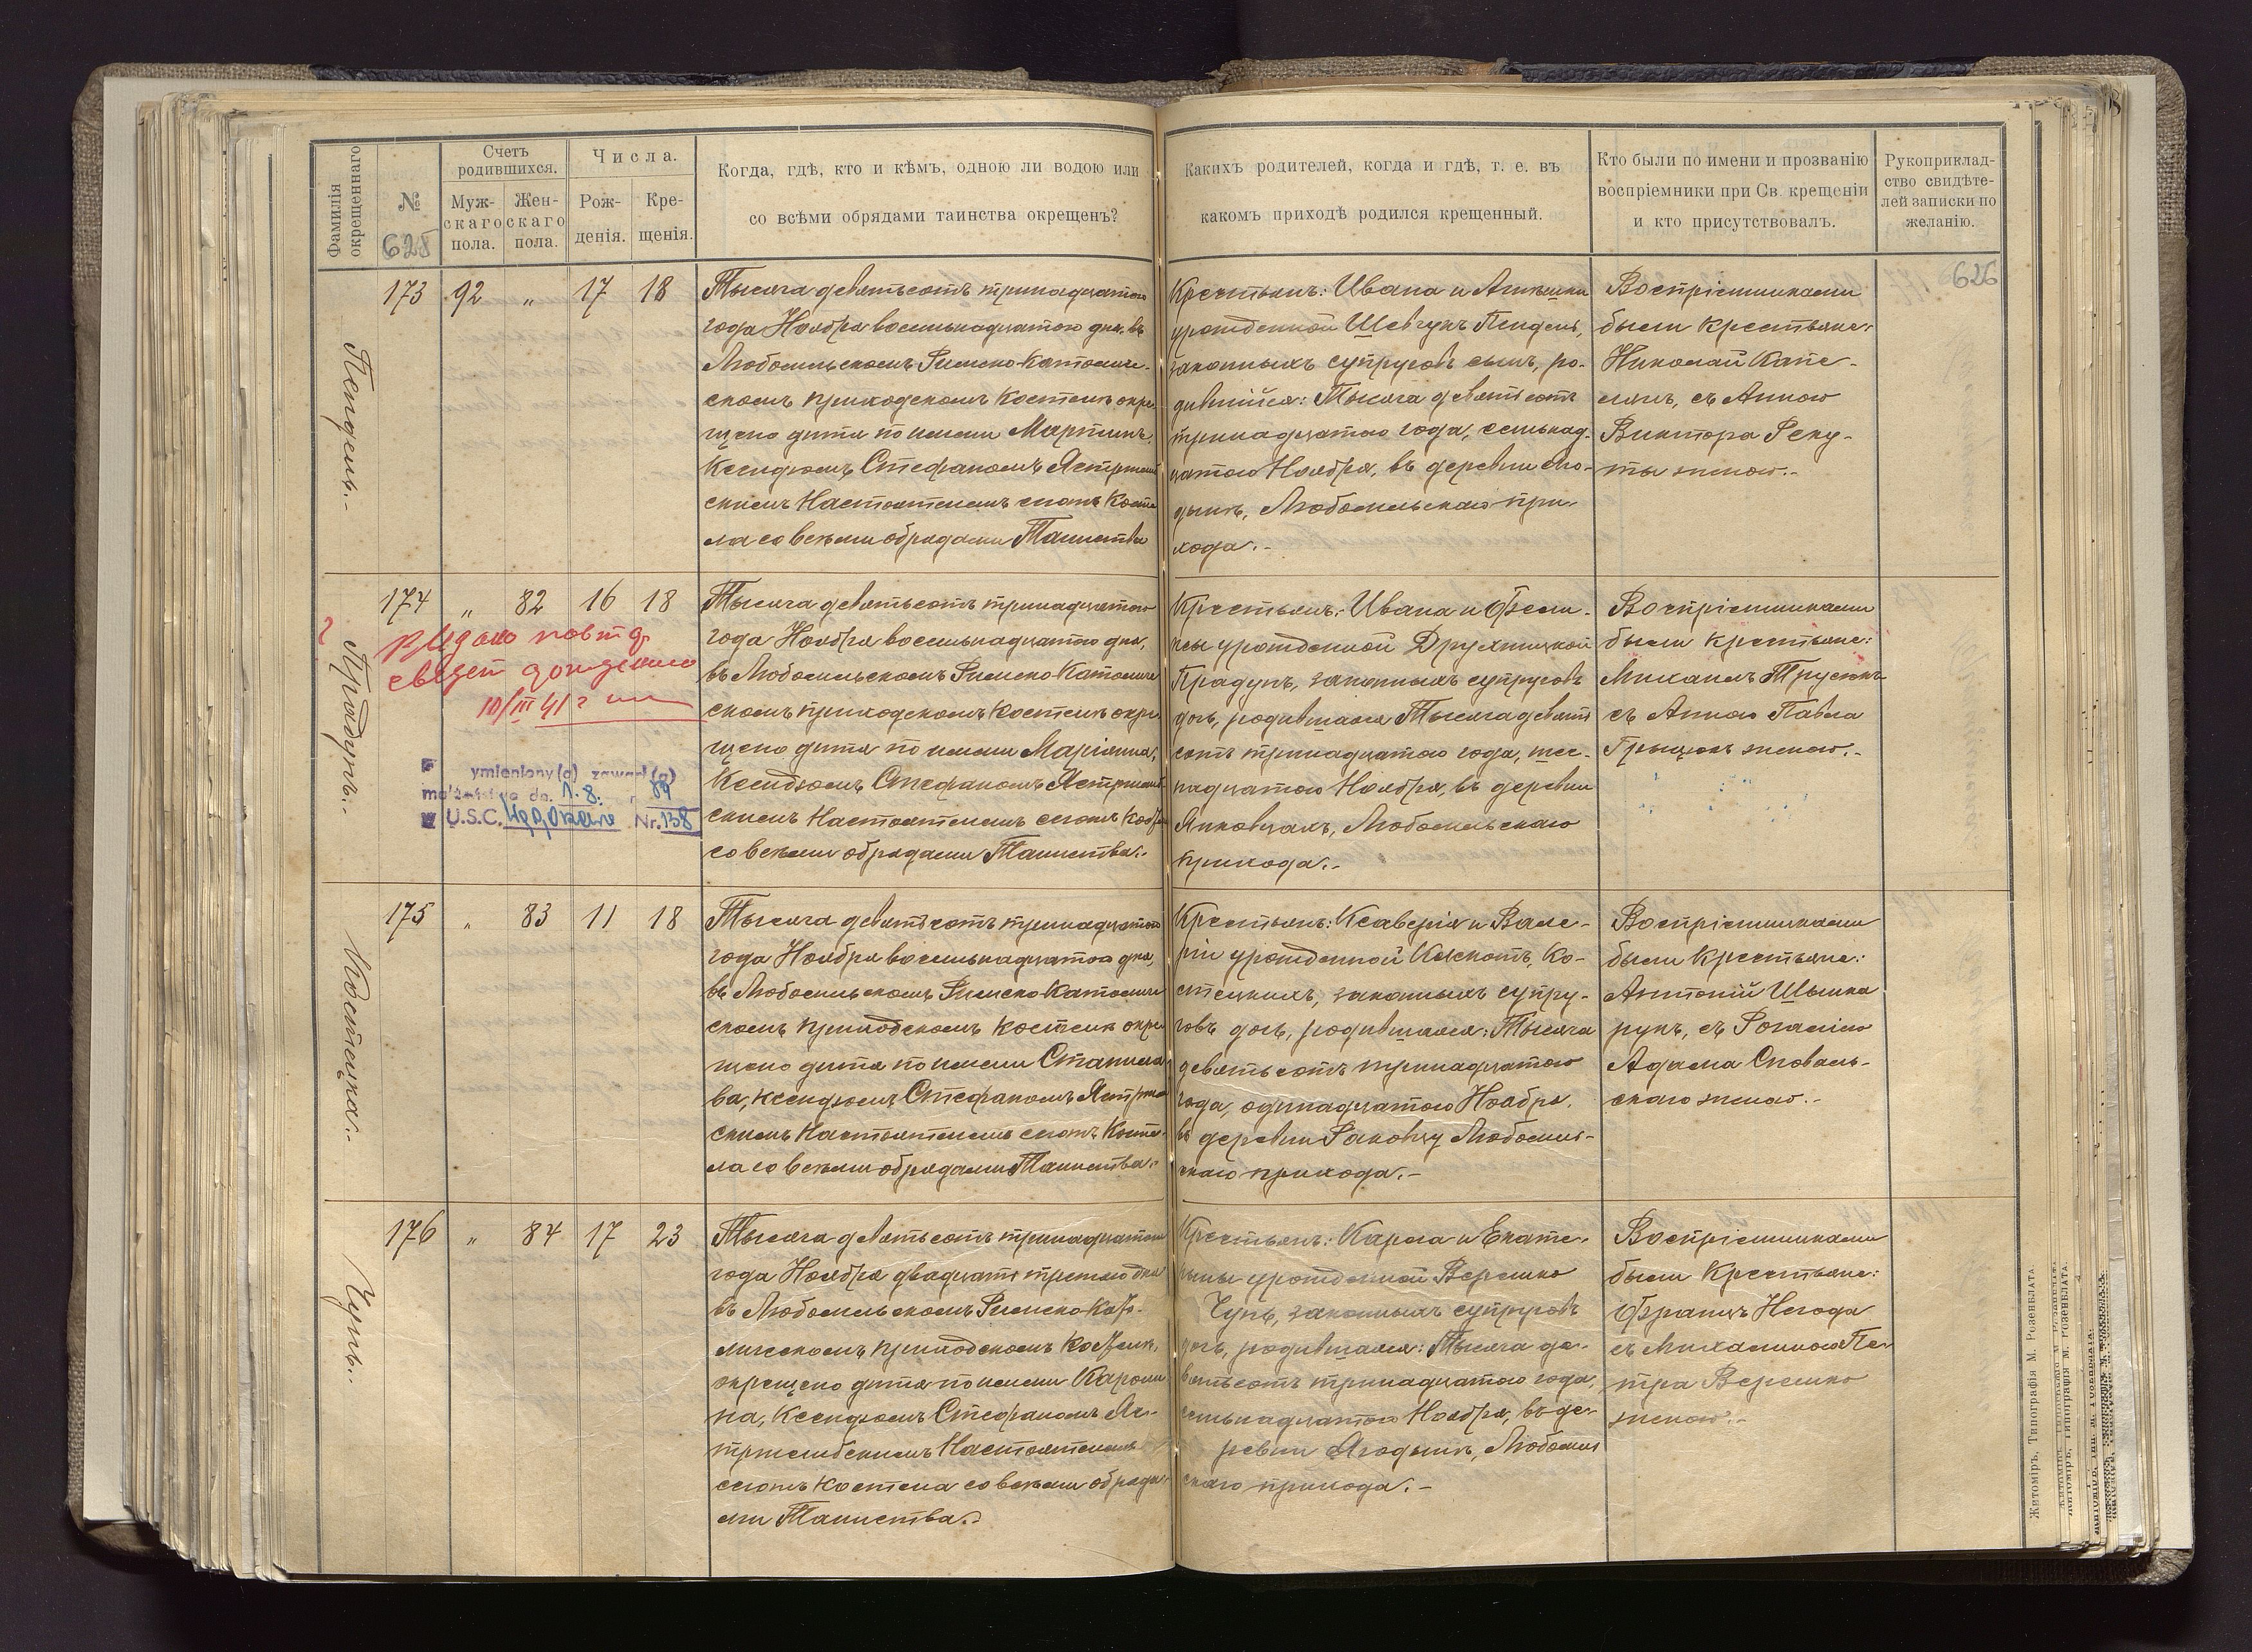 Фамилія окрещеннаго
№
625
Счетъ родившихся.
Муж-
скаго
пола.
Жен-
скаго
пола.
Числа.
Рож-
денія.
Кре-
щенія.
Когда, гдѣ, кто и кѣмъ, одною ли водою или
со всѣми обрядами таинства окрещенъ?
Какихъ родителей, когда и гдѣ, т. е. въ
какомъ приходѣ родился крещенный.
Кто были по имени и прозванію
воспріемники при Св. крещеніи
и кто присутствовалъ.
Рукоприклад-
ство свидѣте-
лей записки по
желанію.
626
Пендель.-
173 92 „ 17 18
Тысяча девятьсотъ тринадцатаго
года Ноября восемнадцатаго дня, въ
Любомльскомъ Римско-Католиче-
скомъ приходскомъ Костелѣ окре-
щено дитя по имени Мартинъ,
Ксендзомъ Стефаномъ Ястржемб-
скимъ Настоятелемъ сегожъ Косте-
ла со всѣми обрядами Таинства
Крестьянъ: Ивана и Агнѣшки
урожденной Шевчукъ Пендель,
законныхъ супруговъ сынъ, ро-
дившійся: Тысяча девятьсотъ
тринадцатаго года, семнад-
цатаго Ноября, въ деревни Яго-
дынѣ, Любомльскаго при-
хода.-
Воспріемниками
были крестьяне:
Николай Капе-
лянъ, съ Анною
Виктора Реку-
ты женою.-
Прадунъ.-
174 „ 82 16 18
10/III 41 г
ymieniony(a) zawarł(a)
małżeństwo dn. 1.8.
U.S.C. Nr. 138
Тысяча девятьсотъ тринадцатаго
года Ноября восемнадцатаго дня,
въ Любомльскомъ Римско-Католиче
скомъ приходскомъ Костелѣ окре-
щено дитя по имени Маріанна,
Ксендзомъ Стефаномъ Ястржемб-
скимъ Настоятелемъ сегожъ Костела
со всѣми обрядами Таинства.-
Крестьянъ: Ивана и Фели-
ксы урожденной Друхницкой
Прадунъ, законныхъ супруговъ
дочь, родившаяся Тысяча девять
сотъ тринадцатаго года, шес-
надцатаго Ноября, въ деревни
Янковцахъ, Любомльскаго
прихода.-
Воспріемниками
были крестьяне:
Михаилъ Трусюкъ
съ Анною Павла
Грыцюкъ женою.-
Костецка.-
175 „ 83 11 18
Тысяча девятьсотъ тринадцатаго
года Ноября восемнадцатаго дня,
въ Любомльскомъ Римско Католиче
скомъ приходскомъ Костелѣ окре
щено дитя по имени Станисла
ва, Ксендзомъ Стефаномъ Ястржемб
скимъ Настоятелемъ сегожъ Косте-
ла со всѣми обрядами Таинства.-
Крестьянъ: Ксаверія и Вале-
ріи урожденной Ко-
стецкихъ, законныхъ супру-
говъ дочь, родившаяся: Тысяча
девятьсотъ тринадцатаго
года, одинадцатаго Ноября.
въ деревни Раковцу Любомль-
скаго прихода.-
Воспріемниками
были Крестьяне:
Антоній Шымка
рукъ, съ Розаліею
Адама Сноваль-
скаго женою.-
Чупъ.-
176 „ 84 17 23
Тысяча девятьсотъ тринадцатаго
года Ноября двадцать третьяго дня
въ Любомльскомъ Римско Като-
лическомъ приходскомъ Костелѣ,
окрещено дитя по имени Кароли
на, Ксендзомъ Стефаномъ Яс-
тржембскимъ Настоятелемъ
сегожъ Костела со всѣми обряда-
ми Таинства.-
Крестьянъ: Карла и Екате-
рины урожденной Веремко
Чупъ, законныхъ супруговъ
дочь, родившаяся: Тысяча де-
вятьсотъ тринадцатаго года,
семнадцатаго Ноября, въ де-
ревни Ягодынѣ, Любомль
скаго прихода.-
Воспріемниками
были Крестьяне:
Францъ Негода
съ Михалиною Пе-
тра Веремко
женою.-
Житоміръ, Типографія М. Розенблата.